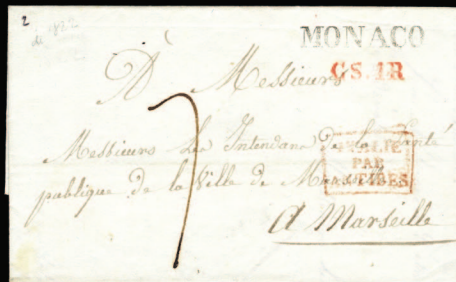 2
de 1822
MONACO
C.S. 1R
À Messieurs
7
Messieurs les Intendans de la Santé
publique de la Ville de Marseille
ITALIE
PAR
ANTIBES
A Marseille